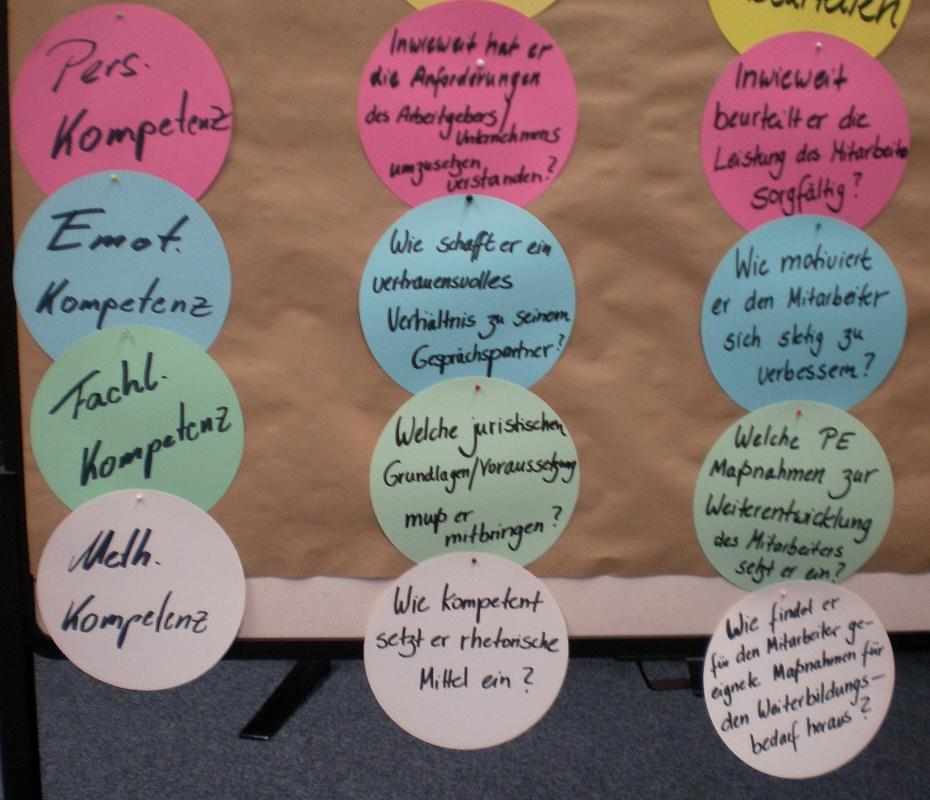 Pers.
Kompetenz
Emot.
Kompetenz
Fachl.
Kompetenz
Meth.
Kompetenz
Inwieweit hat er
die Anforderungen
des Arbeitgebers/
Unternehmens
umzusetzen
verstanden?
Wie schafft er ein
vertrauensvolles
Verhältnis zu seinem
Gesprächspartner?
Welche juristischen
Grundlagen/Voraussetzung
muß er
mitbringen?
Wie kompetent
setzt er rhetorische
Mittel ein?
Inwieweit
beurteilt er die
Leistung des Mitarbeite
sorgfältig?
Wie motiviert
er den Mitarbeiter
sich stetig zu
verbessern?
Welche PE
Maßnahmen zur
Weiterentwicklung
des Mitarbeiters
setzt er ein?
Wie findet er
für den Mitarbeiter ge-
eignete Maßnahmen für
den Weiterbildungs-
bedarf heraus?